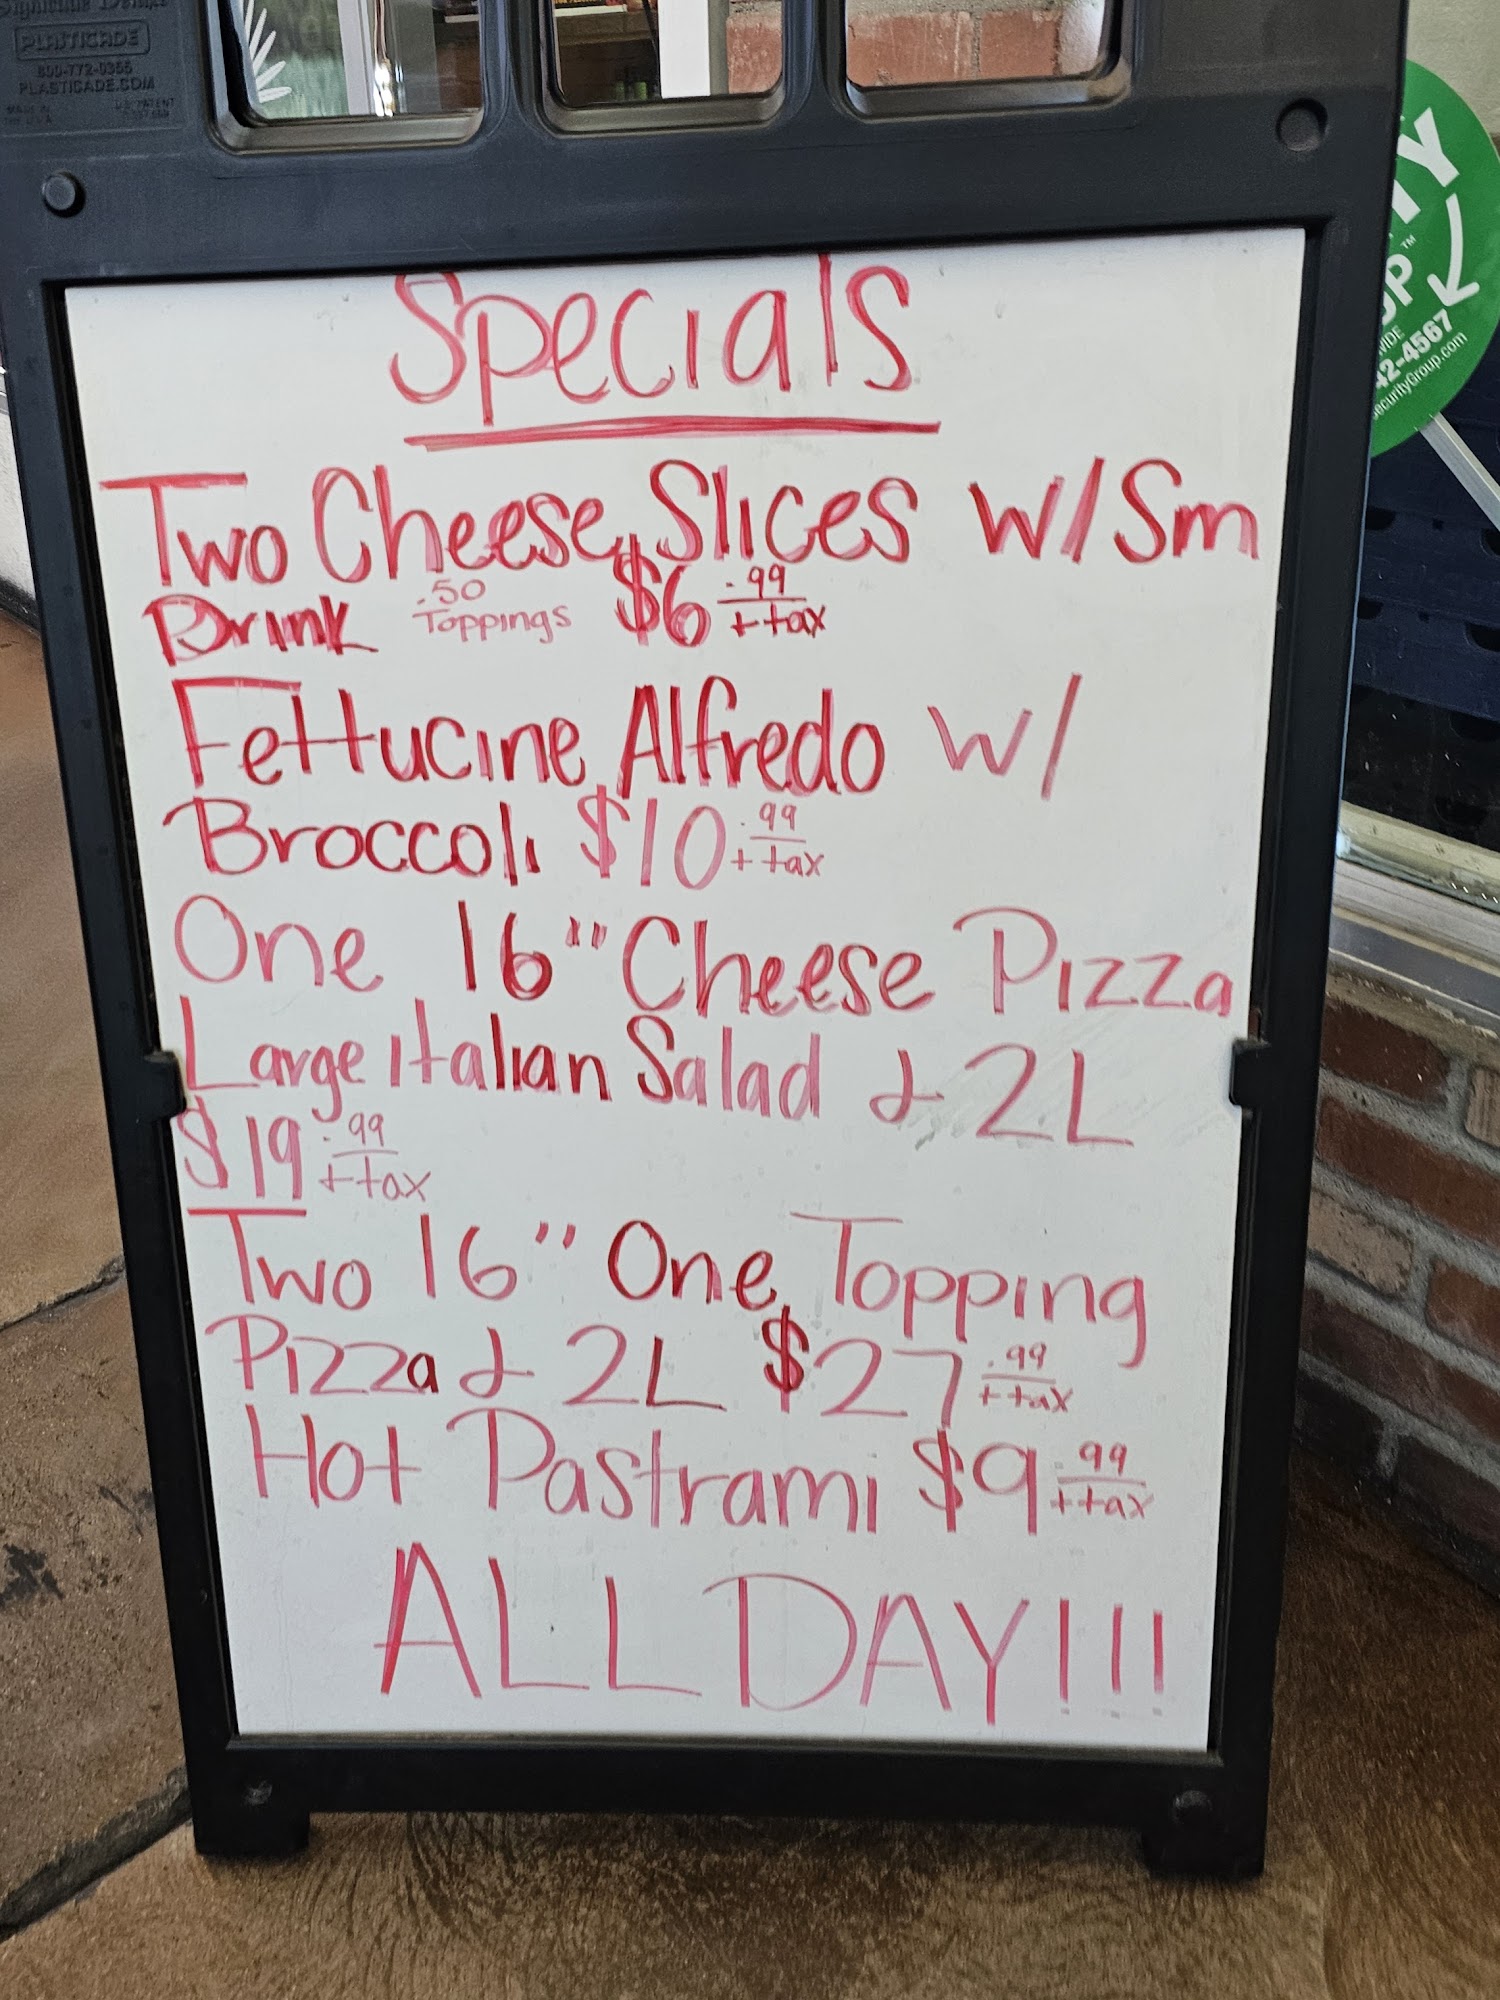 PLASTICADE
800-772-0355
PLASTICADE.COM
MADE IN
U.S.A.
U.S. PATENT
Specials
Two Cheese Slices w/ Sm
Drink .50 Toppings $6 .99 + tax
Fettucine Alfredo w/
Broccoli $10 .99 + tax
One 16" Cheese Pizza
Large Italian Salad & 2L
$19 .99 + tax
Two 16" One Topping
Pizza & 2L $27 .99 + tax
Hot Pastrami $9 .99 + tax
ALL DAY!!!
TM
42-4567
ecurityGroup.com